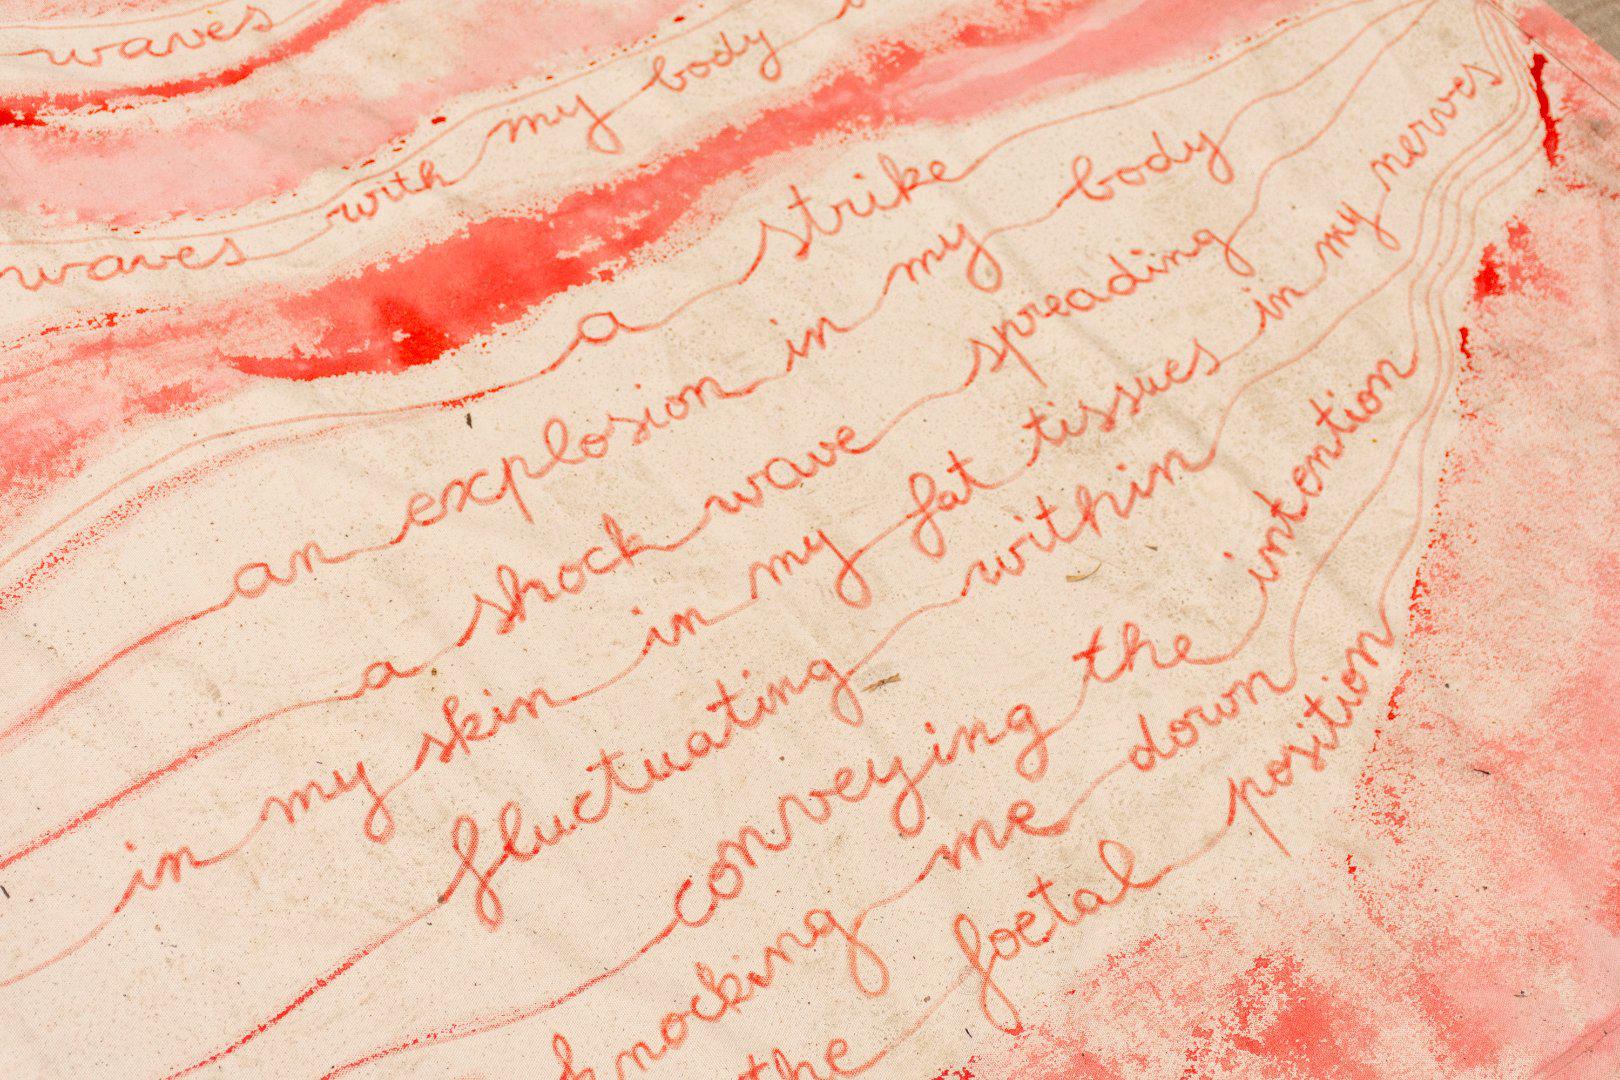 waves
waves with my body
a strike
an explosion in my body
a shock wave spreading
in my skin in my fat tissues in my nerves
fluctuating within
conveying the intention
knocking me down
the foetal position